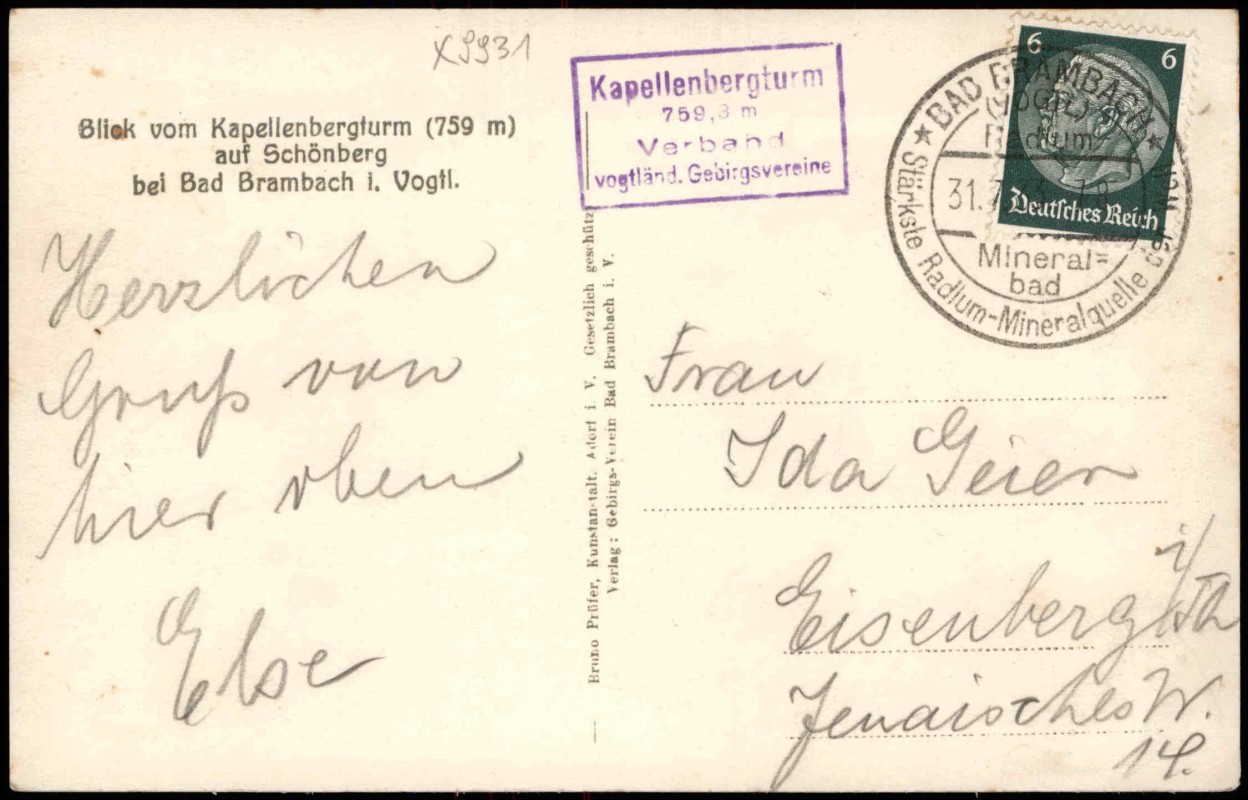 X9931
Blick vom Kapellenbergturm (759 m)
auf Schönberg
bei Bad Brambach i. Vogtl.
Herzlichen
Gruß von
hier oben
Else
Bruno Prüfer, Kunstanstalt, Adorf i. V. Gesetzlich geschützt
Verlag: Gebirgs-Verein Bad Brambach i. V.
Kapellenbergturm
759,3 m
Verband
vogtländ. Gebirgsvereine
BAD BRAMBACH
(VOGTL)
Radium
31.7
Mineral=
bad
Stärkste Radium-Mineralquelle der
6 6
Deutsches Reich
Frau
Ida Geier
Eisenberg i/Th
Jenaisches W.
14.